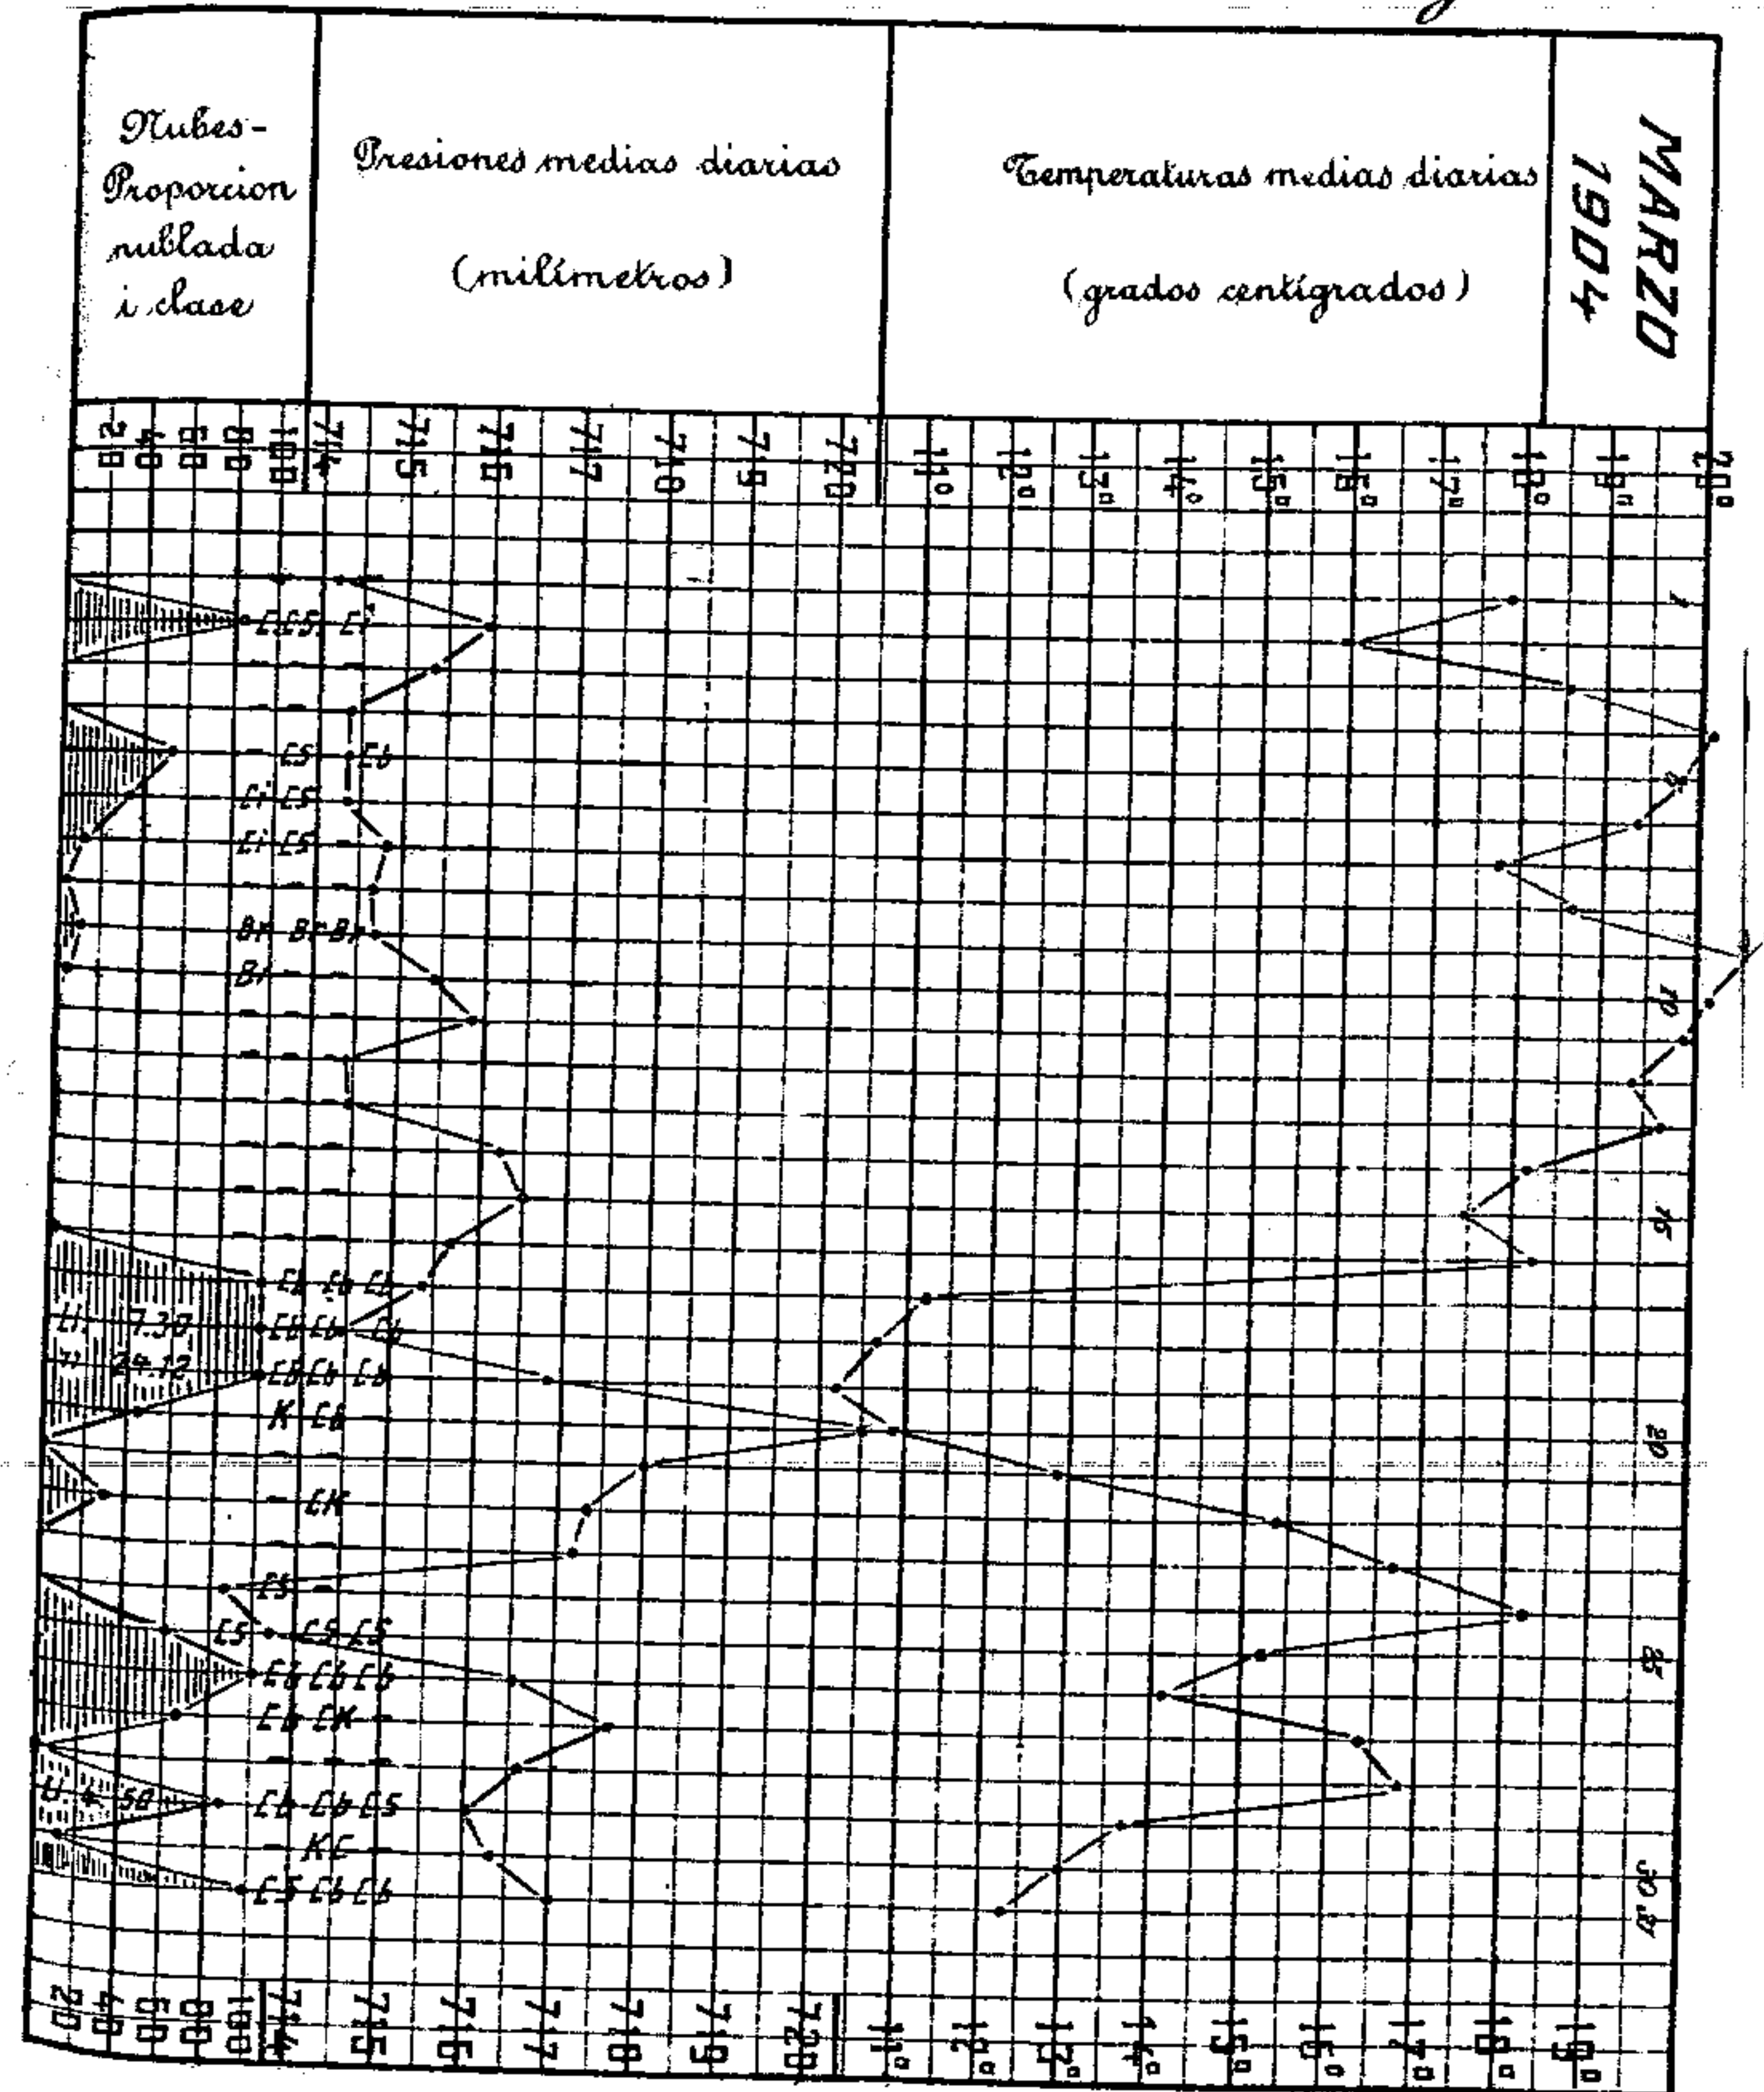 Nubes-
Proporcion
nublada
i clase
Presiones medias diarias
(milímetros)
Temperaturas medias diarias
(grados centígrados)
MARZO
1904
20 40 60 80 100 714 715 716 717 718 719 720 11° 12° 13° 14° 15° 16° 17° 18° 19° 20°
1
Ci
CS Cb
5
Ci CS
Ci CS
Br Br Br
Br
10
15
Cb Cb Cb
7.30 Cb Cb Cb
24.12 Cb Cb Cb
K Cb
20
CK
CS
CS CS CS
25
Cb Cb Cb
Cb CK
Cb Cb CS
KC
30
CS Cb Cb
31
20 40 60 80 100 714 715 716 717 718 719 720 11° 12° 13° 14° 15° 16° 17° 18° 19°